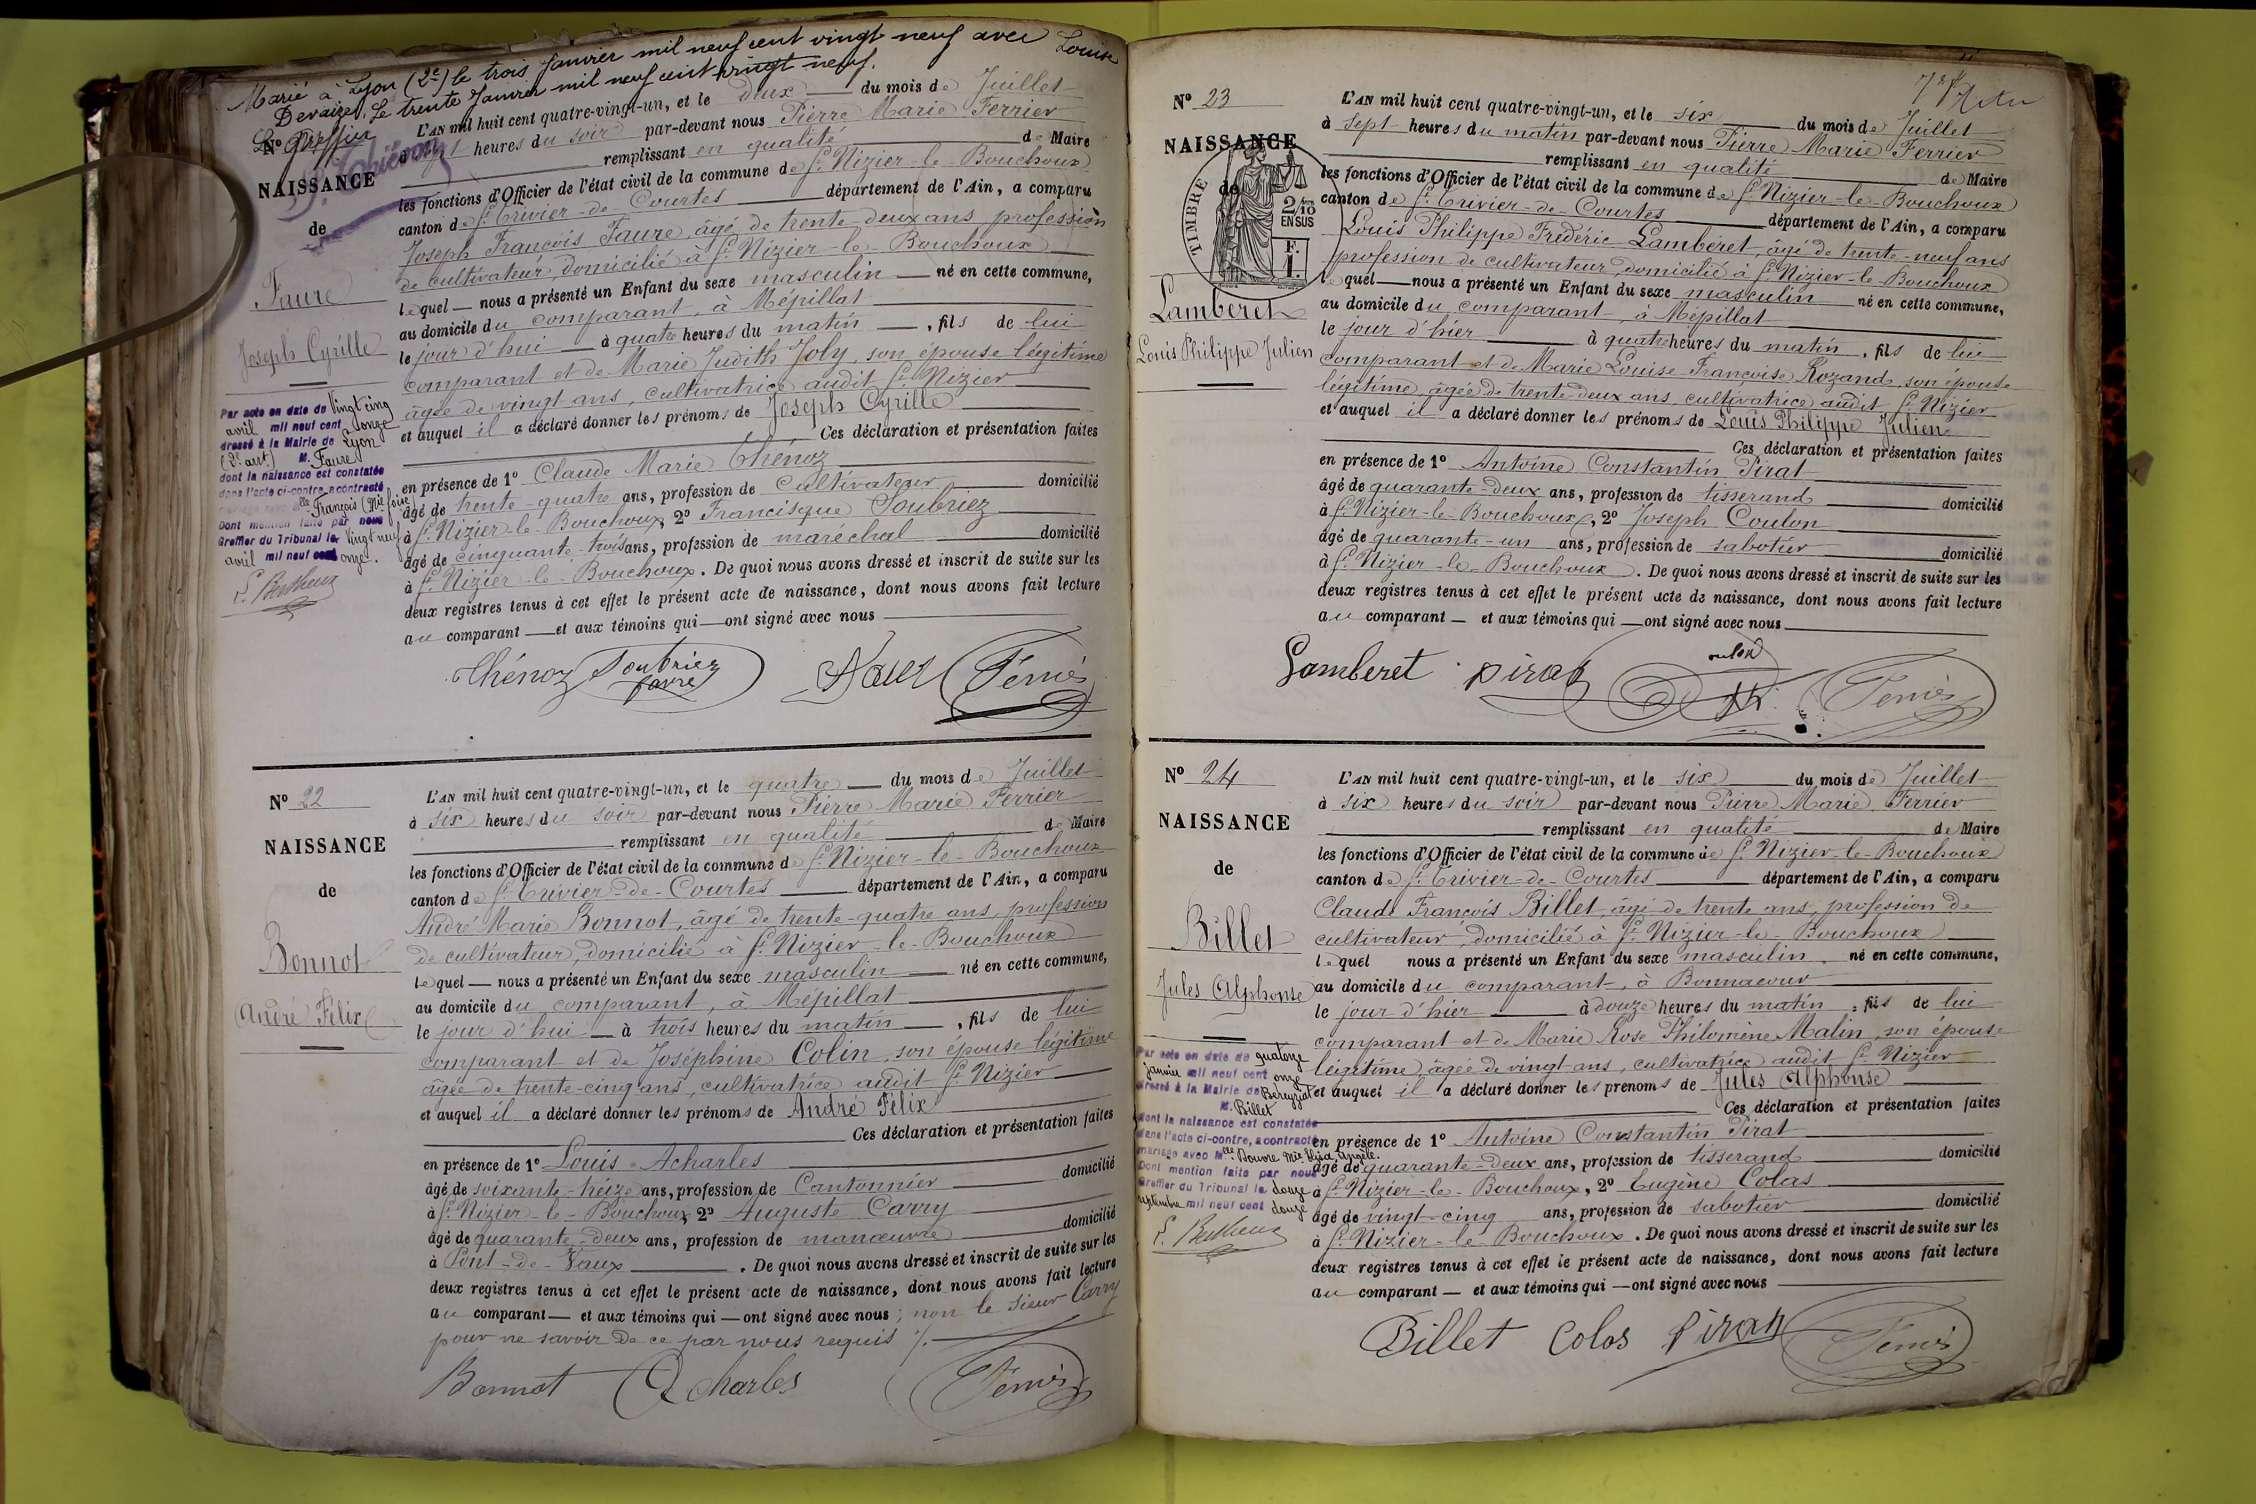 Marié à Lyon (2e) le trois Janvier mil neuf cent vingt neuf avec Louise
Devaize. Le trente Janvier mil neuf cent vingt neuf.
Le Greffier
No
NAISSANCE
de
Faure
Joseph Cyrille
Par acte en date du Vingt cinq
avril mil neuf cent onze
dressé à la Mairie de Lyon
(2e arrt.) M. Faure
dont la naissance est constatée
dans l'acte ci-contre a contracté
François (Mie
Dont mention faite par nous
Greffier du Tribunal le vingt neuf
avril mil neuf cent onze.
L'AN mil huit cent quatre-vingt-un, et le deux du mois de Juillet
à sept heures du soir par-devant nous Pierre Marie Ferrier
remplissant en qualité de Maire
les fonctions d'Officier de l'état civil de la commune de St Nizier-le-Bouchoux
canton de St Trivier-de-Courtes département de l'Ain, a comparu
Joseph François Faure, âgé de trente-deux ans, profession
de cultivateur, domicilié à St Nizier-le-Bouchoux
lequel nous a présenté un Enfant du sexe masculin né en cette commune,
au domicile du comparant, à Mépillat
le jour d'hui à quatre heures du matin, fils de lui
comparant et de Marie Judith Joly, son épouse légitime
âgée de vingt ans, cultivatrice audit St Nizier
et auquel il a déclaré donner les prénoms de Joseph Cyrille
Ces déclaration et présentation faites
en présence de 1o Claude Marie Thénoz
âgé de trente-quatre ans, profession de cultivateur domicilié
à St Nizier-le-Bouchoux, 2o Francisque Soubriez
âgé de cinquante-trois ans, profession de maréchal domicilié
à St Nizier-le-Bouchoux. De quoi nous avons dressé et inscrit de suite sur les
deux registres tenus à cet effet le présent acte de naissance, dont nous avons fait lecture
au comparant et aux témoins qui ont signé avec nous
Thénoz Soubriez Faure Ferrier
No 22
NAISSANCE
de
Bonnot
André Félix
L'AN mil huit cent quatre-vingt-un, et le quatre du mois de Juillet
à six heures du soir par-devant nous Pierre Marie Ferrier
remplissant en qualité de Maire
les fonctions d'Officier de l'état civil de la commune de St Nizier-le-Bouchoux
canton de St Trivier-de-Courtes département de l'Ain, a comparu
André Marie Bonnot, âgé de trente-quatre ans, profession
de cultivateur, domicilié à St Nizier-le-Bouchoux
lequel nous a présenté un Enfant du sexe masculin né en cette commune,
au domicile du comparant, à Mépillat
le jour d'hui à trois heures du matin, fils de lui
comparant et de Joséphine Colin, son épouse légitime
âgée de trente-cinq ans, cultivatrice audit St Nizier
et auquel il a déclaré donner les prénoms de André Félix
Ces déclaration et présentation faites
en présence de 1o Louis Acharles
âgé de soixante-treize ans, profession de Cantonnier domicilié
à St Nizier-le-Bouchoux, 2o Auguste Carry
âgé de quarante-deux ans, profession de manœuvre domicilié
à Pont-de-Vaux. De quoi nous avons dressé et inscrit de suite sur les
deux registres tenus à cet effet le présent acte de naissance, dont nous avons fait lecture
au comparant et aux témoins qui ont signé avec nous; non le sieur Carry
pour ne savoir de ce par nous requis ./.
Bonnot Acharles Ferrier
No 23
NAISSANCE
de
TIMBRE
2/10
EN SUS
F.
1.
Lamberet
Louis Philippe Julien
L'AN mil huit cent quatre-vingt-un, et le six du mois de Juillet
à sept heures du matin par-devant nous Pierre Marie Ferrier
remplissant en qualité de Maire
les fonctions d'Officier de l'état civil de la commune de St Nizier-le-Bouchoux
canton de St Trivier-de-Courtes département de l'Ain, a comparu
Louis Philippe Frédéric Lamberet, âgé de trente-neuf ans
profession de cultivateur, domicilié à St Nizier-le-Bouchoux
lequel nous a présenté un Enfant du sexe masculin né en cette commune,
au domicile du comparant, à Mépillat
le jour d'hier à quatre heures du matin, fils de lui
comparant et de Marie Louise Françoise Rozand, son épouse
légitime, âgée de trente-deux ans, cultivatrice audit St Nizier
et auquel il a déclaré donner les prénoms de Louis Philippe Julien
Ces déclaration et présentation faites
en présence de 1o Antoine Constantin Pirat
âgé de quarante-deux ans, profession de tisserand domicilié
à St Nizier-le-Bouchoux, 2o Joseph Coulon
âgé de quarante-un ans, profession de sabotier domicilié
à St Nizier-le-Bouchoux. De quoi nous avons dressé et inscrit de suite sur les
deux registres tenus à cet effet le présent acte de naissance, dont nous avons fait lecture
au comparant et aux témoins qui ont signé avec nous
Lamberet Pirat Coulon Ferrier
No 24
NAISSANCE
de
Billet
Jules Alphonse
Par acte en date du quatorze
janvier mil neuf cent onze
dressé à la Mairie de Béreyziat
M. Billet
dont la naissance est constatée
dans l'acte ci-contre, a contracté
mariage avec Mlle Douvre Mie Elisa Angèle.
Dont mention faite par nous
Greffier du Tribunal le douze
septembre mil neuf cent douze
L'AN mil huit cent quatre-vingt-un, et le six du mois de Juillet
à six heures du soir par-devant nous Pierre Marie Ferrier
remplissant en qualité de Maire
les fonctions d'Officier de l'état civil de la commune de St Nizier-le-Bouchoux
canton de St Trivier-de-Courtes département de l'Ain, a comparu
Claude François Billet, âgé de trente ans, profession de
cultivateur, domicilié à St Nizier-le-Bouchoux
lequel nous a présenté un Enfant du sexe masculin, né en cette commune,
au domicile du comparant, à Bonnacour
le jour d'hier à douze heures du matin, fils de lui
comparant et de Marie Rose Philomène Malin, son épouse
légitime, âgée de vingt ans, cultivatrice audit St Nizier
et auquel il a déclaré donner les prénoms de Jules Alphonse
Ces déclaration et présentation faites
en présence de 1o Antoine Constantin Pirat
âgé de quarante-deux ans, profession de tisserand domicilié
à St Nizier-le-Bouchoux, 2o Eugène Colas
âgé de vingt-cinq ans, profession de sabotier domicilié
à St Nizier-le-Bouchoux. De quoi nous avons dressé et inscrit de suite sur les
deux registres tenus à cet effet le présent acte de naissance, dont nous avons fait lecture
au comparant et aux témoins qui ont signé avec nous
Billet Colas Pirat Ferrier